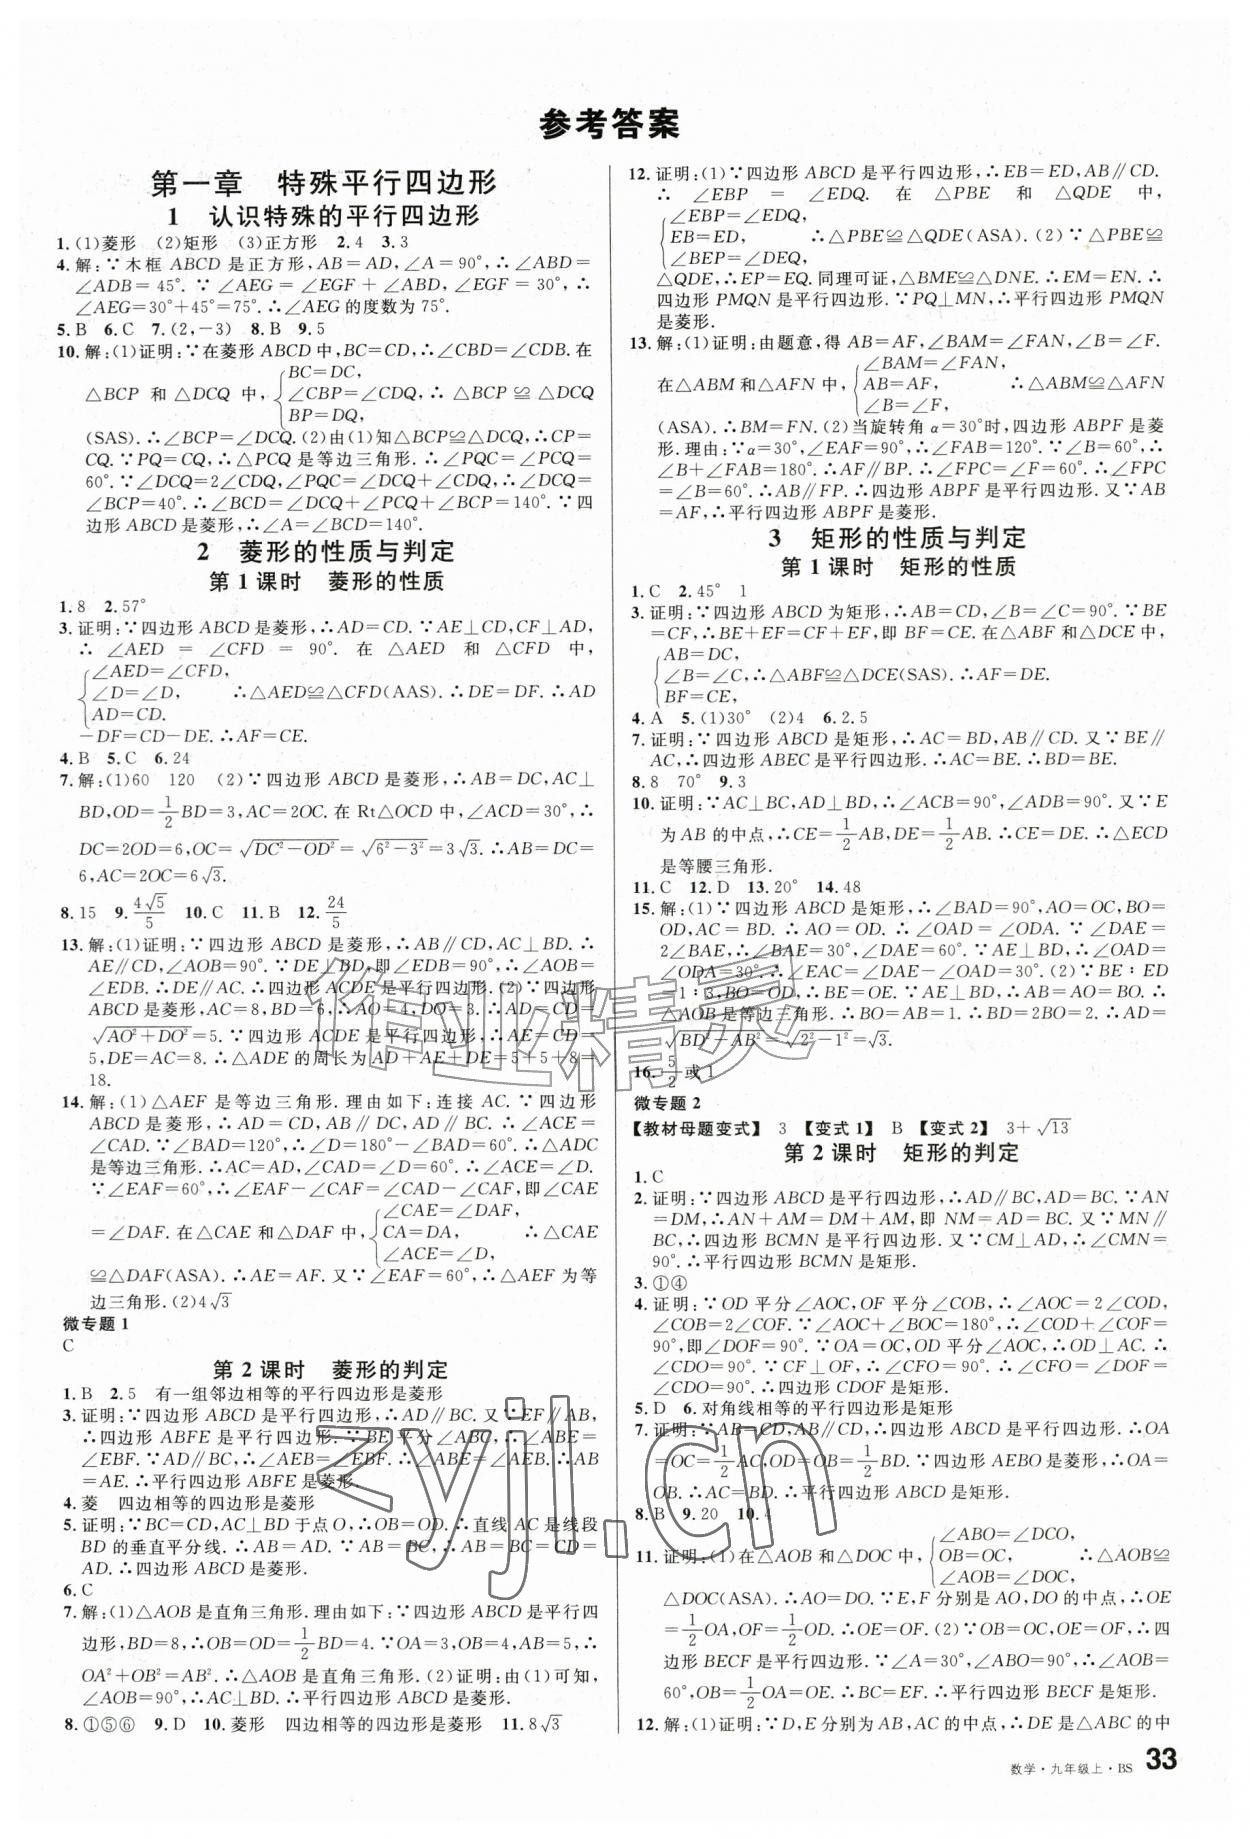 参考答案
第一章 特殊平行四边形
1 认识特殊的平行四边形
1.(1)菱形 (2)矩形 (3)正方形 2.4 3.3
4.解:∵木框 ABCD 是正方形,AB=AD,∠A=90°,∴∠ABD=
∠ADB=45°.∵∠AEG=∠EGF+∠ABD,∠EGF=30°,∴
∠AEG=30°+45°=75°.∴∠AEG 的度数为 75°.
5.B 6.C 7.(2,-3) 8.B 9.5
10.解:(1)证明:∵在菱形 ABCD 中,BC=CD,∴∠CBD=∠CDB.在
△BCP 和 △DCQ 中,{BC=DC, ∠CBP=∠CDQ, BP=DQ, ∴△BCP≌△DCQ
(SAS).∴∠BCP=∠DCQ.(2)由(1)知△BCP≌△DCQ,∴CP=
CQ.∵PQ=CQ,∴△PCQ 是等边三角形.∴∠PQC=∠PCQ=
60°.∵∠DCQ=2∠CDQ,∠PQC=∠DCQ+∠CDQ,∴∠DCQ=
∠BCP=40°.∴∠BCD=∠DCQ+∠PCQ+∠BCP=140°.∵四
边形 ABCD 是菱形,∴∠A=∠BCD=140°.
2 菱形的性质与判定
第1课时 菱形的性质
1.8 2.57°
3.证明:∵四边形 ABCD 是菱形,∴AD=CD.∵AE⊥CD,CF⊥AD,
∴∠AED=∠CFD=90°.在△AED 和 △CFD 中,
{∠AED=∠CFD, ∠D=∠D, AD=CD. ∴△AED≌△CFD(AAS).∴DE=DF.∴AD
-DF=CD-DE.∴AF=CE.
4.B 5.C 6.24
7.解:(1)60 120 (2)∵四边形 ABCD 是菱形,∴AB=DC,AC⊥
BD,OD=1/2BD=3,AC=2OC.在 Rt△OCD 中,∠ACD=30°,∴
DC=2OD=6,OC=√(DC²-OD²)=√(6²-3²)=3√3.∴AB=DC=
6,AC=2OC=6√3.
8.15 9.4√5/5 10.C 11.B 12.24/5
13.解:(1)证明:∵四边形 ABCD 是菱形,∴AB∥CD,AC⊥BD.∴
AE∥CD,∠AOB=90°.∵DE⊥BD,即∠EDB=90°,∴∠AOB=
∠EDB.∴DE∥AC.∴四边形 ACDE 是平行四边形.(2)∵四边形
ABCD 是菱形,AC=8,BD=6,∴AO=4,DO=3.∴AD=CD=
√(AO²+DO²)=5.∵四边形 ACDE 是平行四边形,∴AE=CD=
5,DE=AC=8.∴△ADE 的周长为 AD+AE+DE=5+5+8=
18.
14.解:(1)△AEF 是等边三角形.理由如下:连接 AC.∵四边形
ABCD 是菱形,∴AD=CD,AB∥CD,AD∥BC.∴∠ACE=
∠CAD.∵∠BAD=120°,∴∠D=180°-∠BAD=60°.∴△ADC
是等边三角形.∴AC=AD,∠CAD=∠D=60°.∴∠ACE=∠D.
∵∠EAF=60°,∴∠EAF-∠CAF=∠CAD-∠CAF,即∠CAE
=∠DAF.在△CAE 和△DAF 中,{∠CAE=∠DAF, CA=DA, ∠ACE=∠D, ∴△CAE
≌△DAF(ASA).∴AE=AF.又∵∠EAF=60°,∴△AEF 为等
边三角形.(2)4√3
微专题1
C
第2课时 菱形的判定
1.B 2.5 有一组邻边相等的平行四边形是菱形
3.证明:∵四边形 ABCD 是平行四边形,∴AD∥BC.又∵EF∥AB,
∴四边形 ABFE 是平行四边形.∵BE 平分∠ABC,∴∠ABE=
∠EBF.∵AD∥BC,∴∠AEB=∠EBF.∴∠ABE=∠AEB.∴AB
=AE.∴平行四边形 ABFE 是菱形.
4.菱 四边相等的四边形是菱形
5.证明:∵BC=CD,AC⊥BD 于点 O,∴OB=OD.∴直线 AC 是线段
BD 的垂直平分线.∴AB=AD.∵AB=BC,∴AB=BC=CD=
AD.∴四边形 ABCD 是菱形.
6.C
7.解:(1)△AOB 是直角三角形.理由如下:∵四边形 ABCD 是平行四
边形,BD=8,∴OB=OD=1/2BD=4.∵OA=3,OB=4,AB=5,∴
OA²+OB²=AB².∴△AOB 是直角三角形.(2)证明:由(1)可知,
∠AOB=90°,∴AC⊥BD.∴平行四边形 ABCD 是菱形.
8.①⑤⑥ 9.D 10.菱形 四边相等的四边形是菱形 11.8√3
12.证明:(1)∵四边形 ABCD 是平行四边形,∴EB=ED,AB∥CD.
∴∠EBP=∠EDQ.在△PBE 和 △QDE 中,
{∠EBP=∠EDQ, EB=ED, ∠BEP=∠DEQ, ∴△PBE≌△QDE(ASA).(2)∵△PBE≌
△QDE,∴EP=EQ.同理可证,△BME≌△DNE.∴EM=EN.∴
四边形 PMQN 是平行四边形.∵PQ⊥MN,∴平行四边形 PMQN
是菱形.
13.解:(1)证明:由题意,得 AB=AF,∠BAM=∠FAN,∠B=∠F.
在△ABM 和△AFN 中,{∠BAM=∠FAN, AB=AF, ∠B=∠F, ∴△ABM≌△AFN
(ASA).∴BM=FN.(2)当旋转角 α=30°时,四边形 ABPF 是菱
形.理由:∵α=30°,∠EAF=90°,∴∠FAB=120°.∵∠B=60°,∴
∠B+∠FAB=180°.∴AF∥BP.∴∠FPC=∠F=60°.∴∠FPC
=∠B=60°.∴AB∥FP.∴四边形 ABPF 是平行四边形.又∵AB
=AF,∴平行四边形 ABPF 是菱形.
3 矩形的性质与判定
第1课时 矩形的性质
1.C 2.45° 1
3.证明:∵四边形 ABCD 为矩形,∴AB=CD,∠B=∠C=90°.∵BE
=CF,∴BE+EF=CF+EF,即 BF=CE.在△ABF 和△DCE 中,
{AB=DC, ∠B=∠C, BF=CE, ∴△ABF≌△DCE(SAS).∴AF=DE.
4.A 5.(1)30° (2)4 6.2.5
7.证明:∵四边形 ABCD 是矩形,∴AC=BD,AB∥CD.又∵BE∥
AC,∴四边形 ABEC 是平行四边形.∴AC=BE.∴BD=BE.
8.8 70° 9.3
10.证明:∵AC⊥BC,AD⊥BD,∴∠ACB=90°,∠ADB=90°.又∵E
为 AB 的中点,∴CE=1/2AB,DE=1/2AB.∴CE=DE.∴△ECD
是等腰三角形.
11.C 12.D 13.20° 14.48
15.解:(1)∵四边形 ABCD 是矩形,∴∠BAD=90°,AO=OC,BO=
OD,AC=BD.∴AO=OD.∴∠OAD=∠ODA.∵∠DAE=
2∠BAE,∴∠BAE=30°,∠DAE=60°.∵AE⊥BD,∴∠OAD=
∠ODA=30°.∴∠EAC=∠DAE-∠OAD=30°.(2)∵BE∶ED
=1∶3,BO=OD,∴BE=OE.∵AE⊥BO,∴AB=AO=BO.∴
△AOB 是等边三角形.∴BO=AB=1.∴BD=2BO=2.∴AD=
√(BD²-AB²)=√(2²-1²)=√3.
16.5/2或 1
微专题2
【教材母题变式】 3 【变式1】 B 【变式2】 3+√13
第2课时 矩形的判定
1.C
2.证明:∵四边形 ABCD 是平行四边形,∴AD∥BC,AD=BC.∵AN
=DM,∴AN+AM=DM+AM,即 NM=AD=BC.又∵MN∥
BC,∴四边形 BCMN 是平行四边形.又∵CM⊥AD,∴∠CMN=
90°.∴平行四边形 BCMN 是矩形.
3.①④
4.证明:∵OD 平分∠AOC,OF 平分∠COB,∴∠AOC=2∠COD,
∠COB=2∠COF.∵∠AOC+∠BOC=180°,∴∠COD+∠COF=
90°,即∠DOF=90°.∵OA=OC,OD 平分∠AOC,∴OD⊥AC.∴
∠CDO=90°.∵CF⊥OF,∴∠CFO=90°.∴∠CFO=∠DOF=
∠CDO=90°.∴四边形 CDOF 是矩形.
5.D 6.对角线相等的平行四边形是矩形
7.证明:∵AB=CD,AB∥CD,∴四边形 ABCD 是平行四边形.∴OA
=OC=1/2AC,OD=OB=1/2BD.∵四边形 AEBO 是菱形,∴OA=
OB.∴AC=BD.∴平行四边形 ABCD 是矩形.
8.B 9.20 10.4
11.证明:(1)在△AOB 和△DOC 中,{∠ABO=∠DCO, OB=OC, ∠AOB=∠DOC, ∴△AOB≌
△DOC(ASA).∴AO=DO.∵E,F 分别是 AO,DO 的中点,∴OE
=1/2OA,OF=1/2OD.∴OE=OF.(2)∵OB=OC,OE=OF,∴四
边形 BECF 是平行四边形.∵∠A=30°,∠ABO=90°,∴∠AOB=
60°,OB=1/2OA=OE.∴BC=EF.∴平行四边形 BECF 是矩形.
12.解:(1)证明:∵D,E 分别为 AB,AC 的中点,∴DE 是△ABC 的中
数学·九年级上·BS 33
作业精灵
zyjl.cn